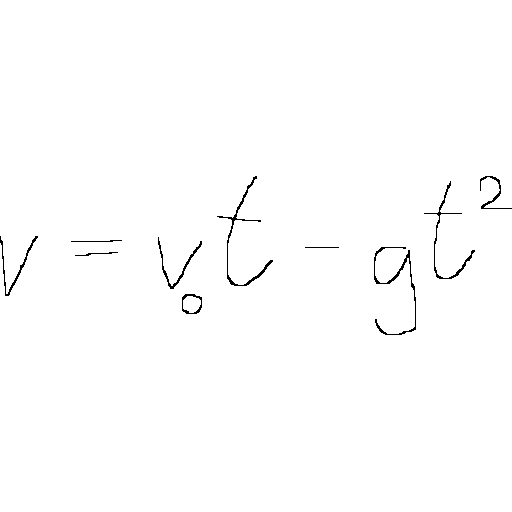 v = v₀t - gt²